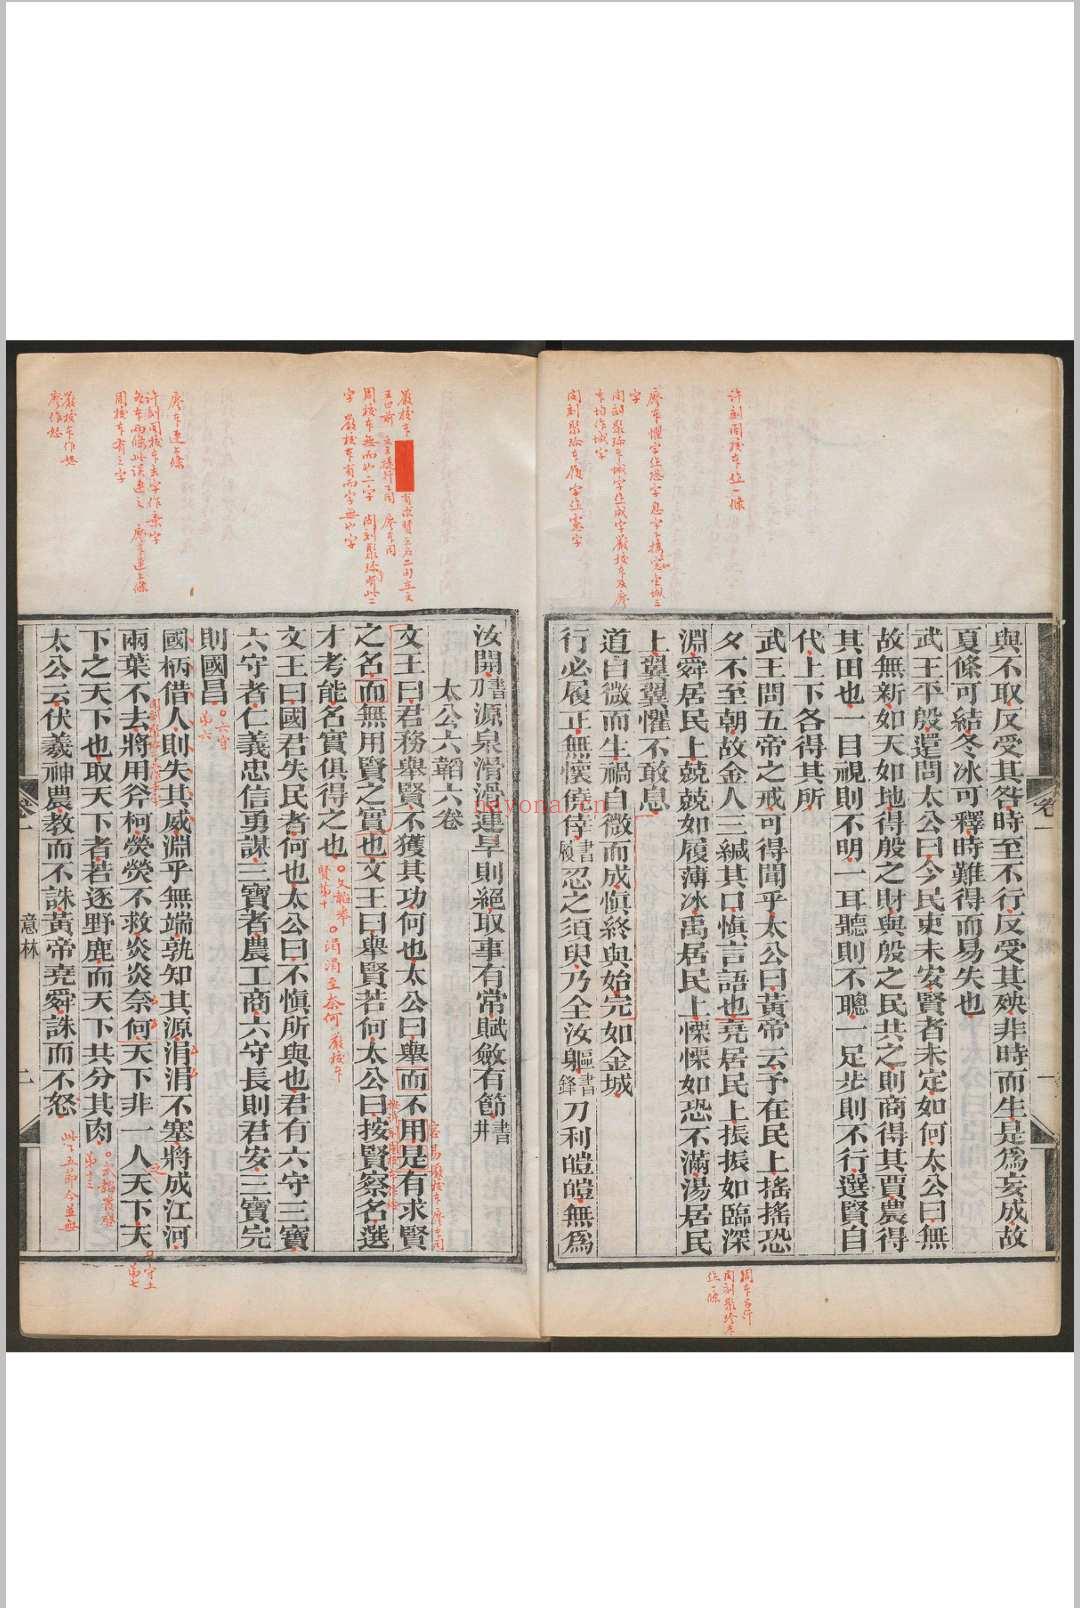 許刻周校本作一條
與不取反受其咎時至不行反受其殃非時而生是爲妄成故
夏條可結冬冰可釋時難得而易失也
武王平殷還問太公曰今民吏未安賢者未定如何太公曰無
故無新如天如地得殷之財與殷之民共之則商得其賈農得
其田也一目視則不明一耳聽則不聰一足步則不行選賢自
代上下各得其所
武王問五帝之戒可得聞乎太公曰黃帝云予在民上搖搖恐
夕不至朝故金人三緘其口愼言語也堯居民上振振如臨深
淵舜居民上兢兢如履薄冰禹居民上慄慄如恐不滿湯居民
上翼翼懼不敢息
道自微而生禍自微而成愼終與始完如金城
行必履正無懷僥倖書履忍之須臾乃全汝軀書鋒刀利皚皚無爲
卷一
一
汝開書源泉滑滑連旱則絕取事有常賦斂有節書井
太公六韜六卷
文王曰君務舉賢不獲其功何也太公曰舉而不用是有求賢
之名而無用賢之實也文王曰舉賢若何太公曰按賢察名選
才考能名實俱得之也
文韜舉
賢第十
文王曰國君失民者何也太公曰不愼所與也君有六守三寶
六守者仁義忠信勇謀三寶者農工商六守長則君安三寶完
則國昌
六守
第六
國柄借人則失其威淵乎無端孰知其源涓涓不塞將成江河
兩葉不去將用斧柯熒熒不救炎炎奈何天下非一人天下天
守土
第七
下之天下也取天下者若逐野鹿而天下共分其肉
武韜發啓
第十三
太公云伏羲神農教而不誅黃帝堯舜誅而不怒
此五節今並無
意林
二
廖本連上條
周校本有之字
嚴校本作怒
nayona.cn